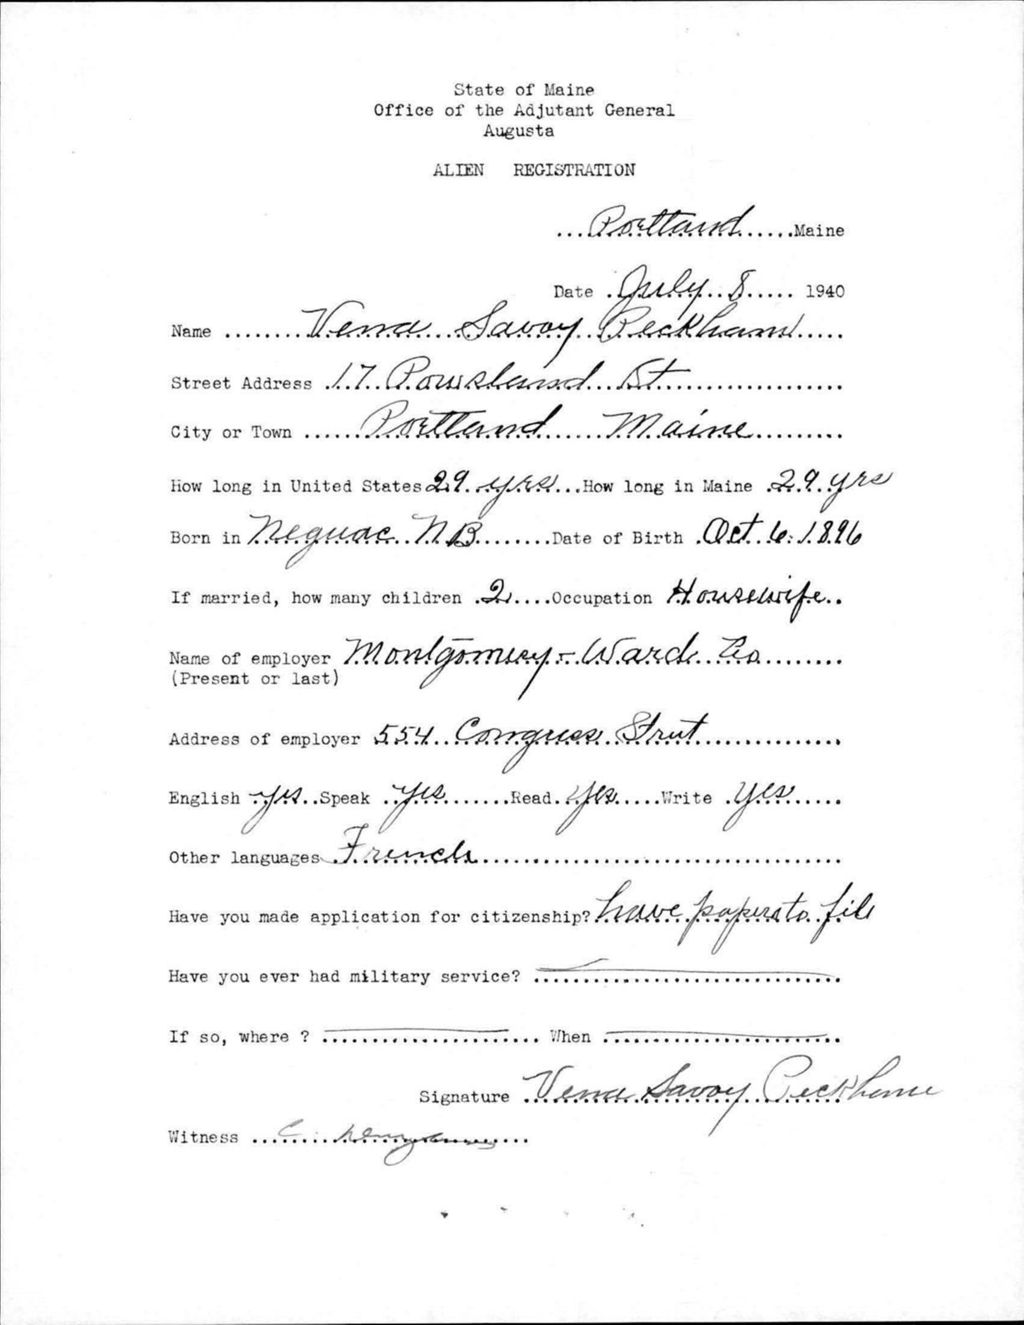 State of Maine
Office of the Adjutant General
Augusta
ALIEN REGISTRATION
...Portland......Maine
Date .July..8..... 1940
Name ........Vena...Savoy Peckham.....
Street Address .17..Powsland..St...................
City or Town ......Portland......Maine.........
How long in United States 29.yrs...How long in Maine .29.yrs
Born in Neguac..NB........Date of Birth .Oct.6.1896
If married, how many children .2....Occupation Housewife..
Name of employer Montgomery-Ward..Co.........
(Present or last)
Address of employer 554..Congress..Street................
English yes..Speak ..yes.......Read.yes.....Write .yes......
Other languages..French....................................
Have you made application for citizenship? have papers to file
Have you ever had military service? ...............................
If so, where ? ...................... When .......................
Signature .Vena Savoy Peckham
Witness ...C..